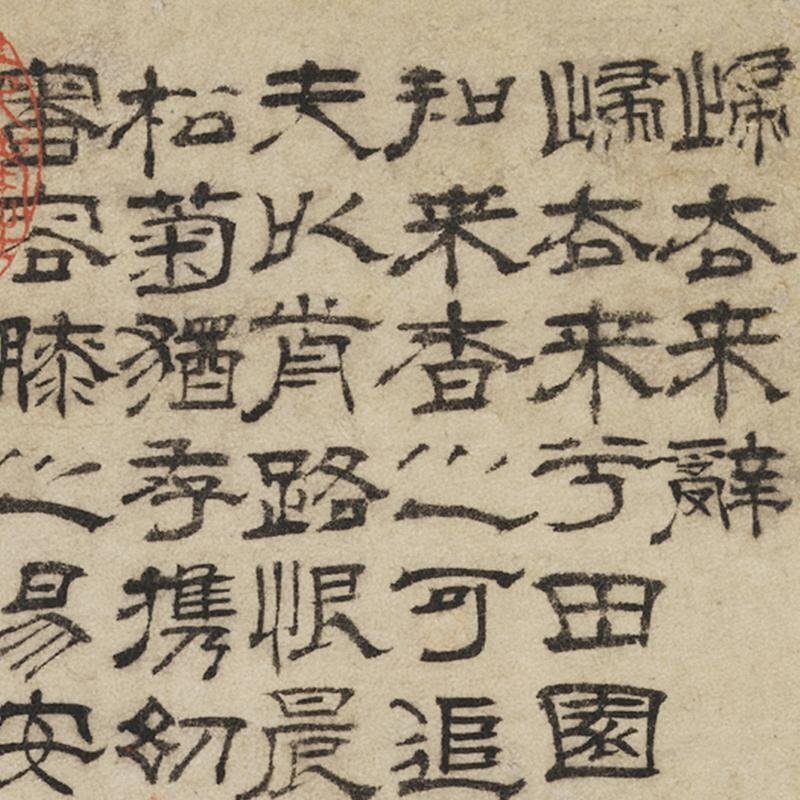 歸去来辭
歸去来兮田園
知来者之可追
夫以前路恨晨
松菊猶存携幼
審容膝之易安